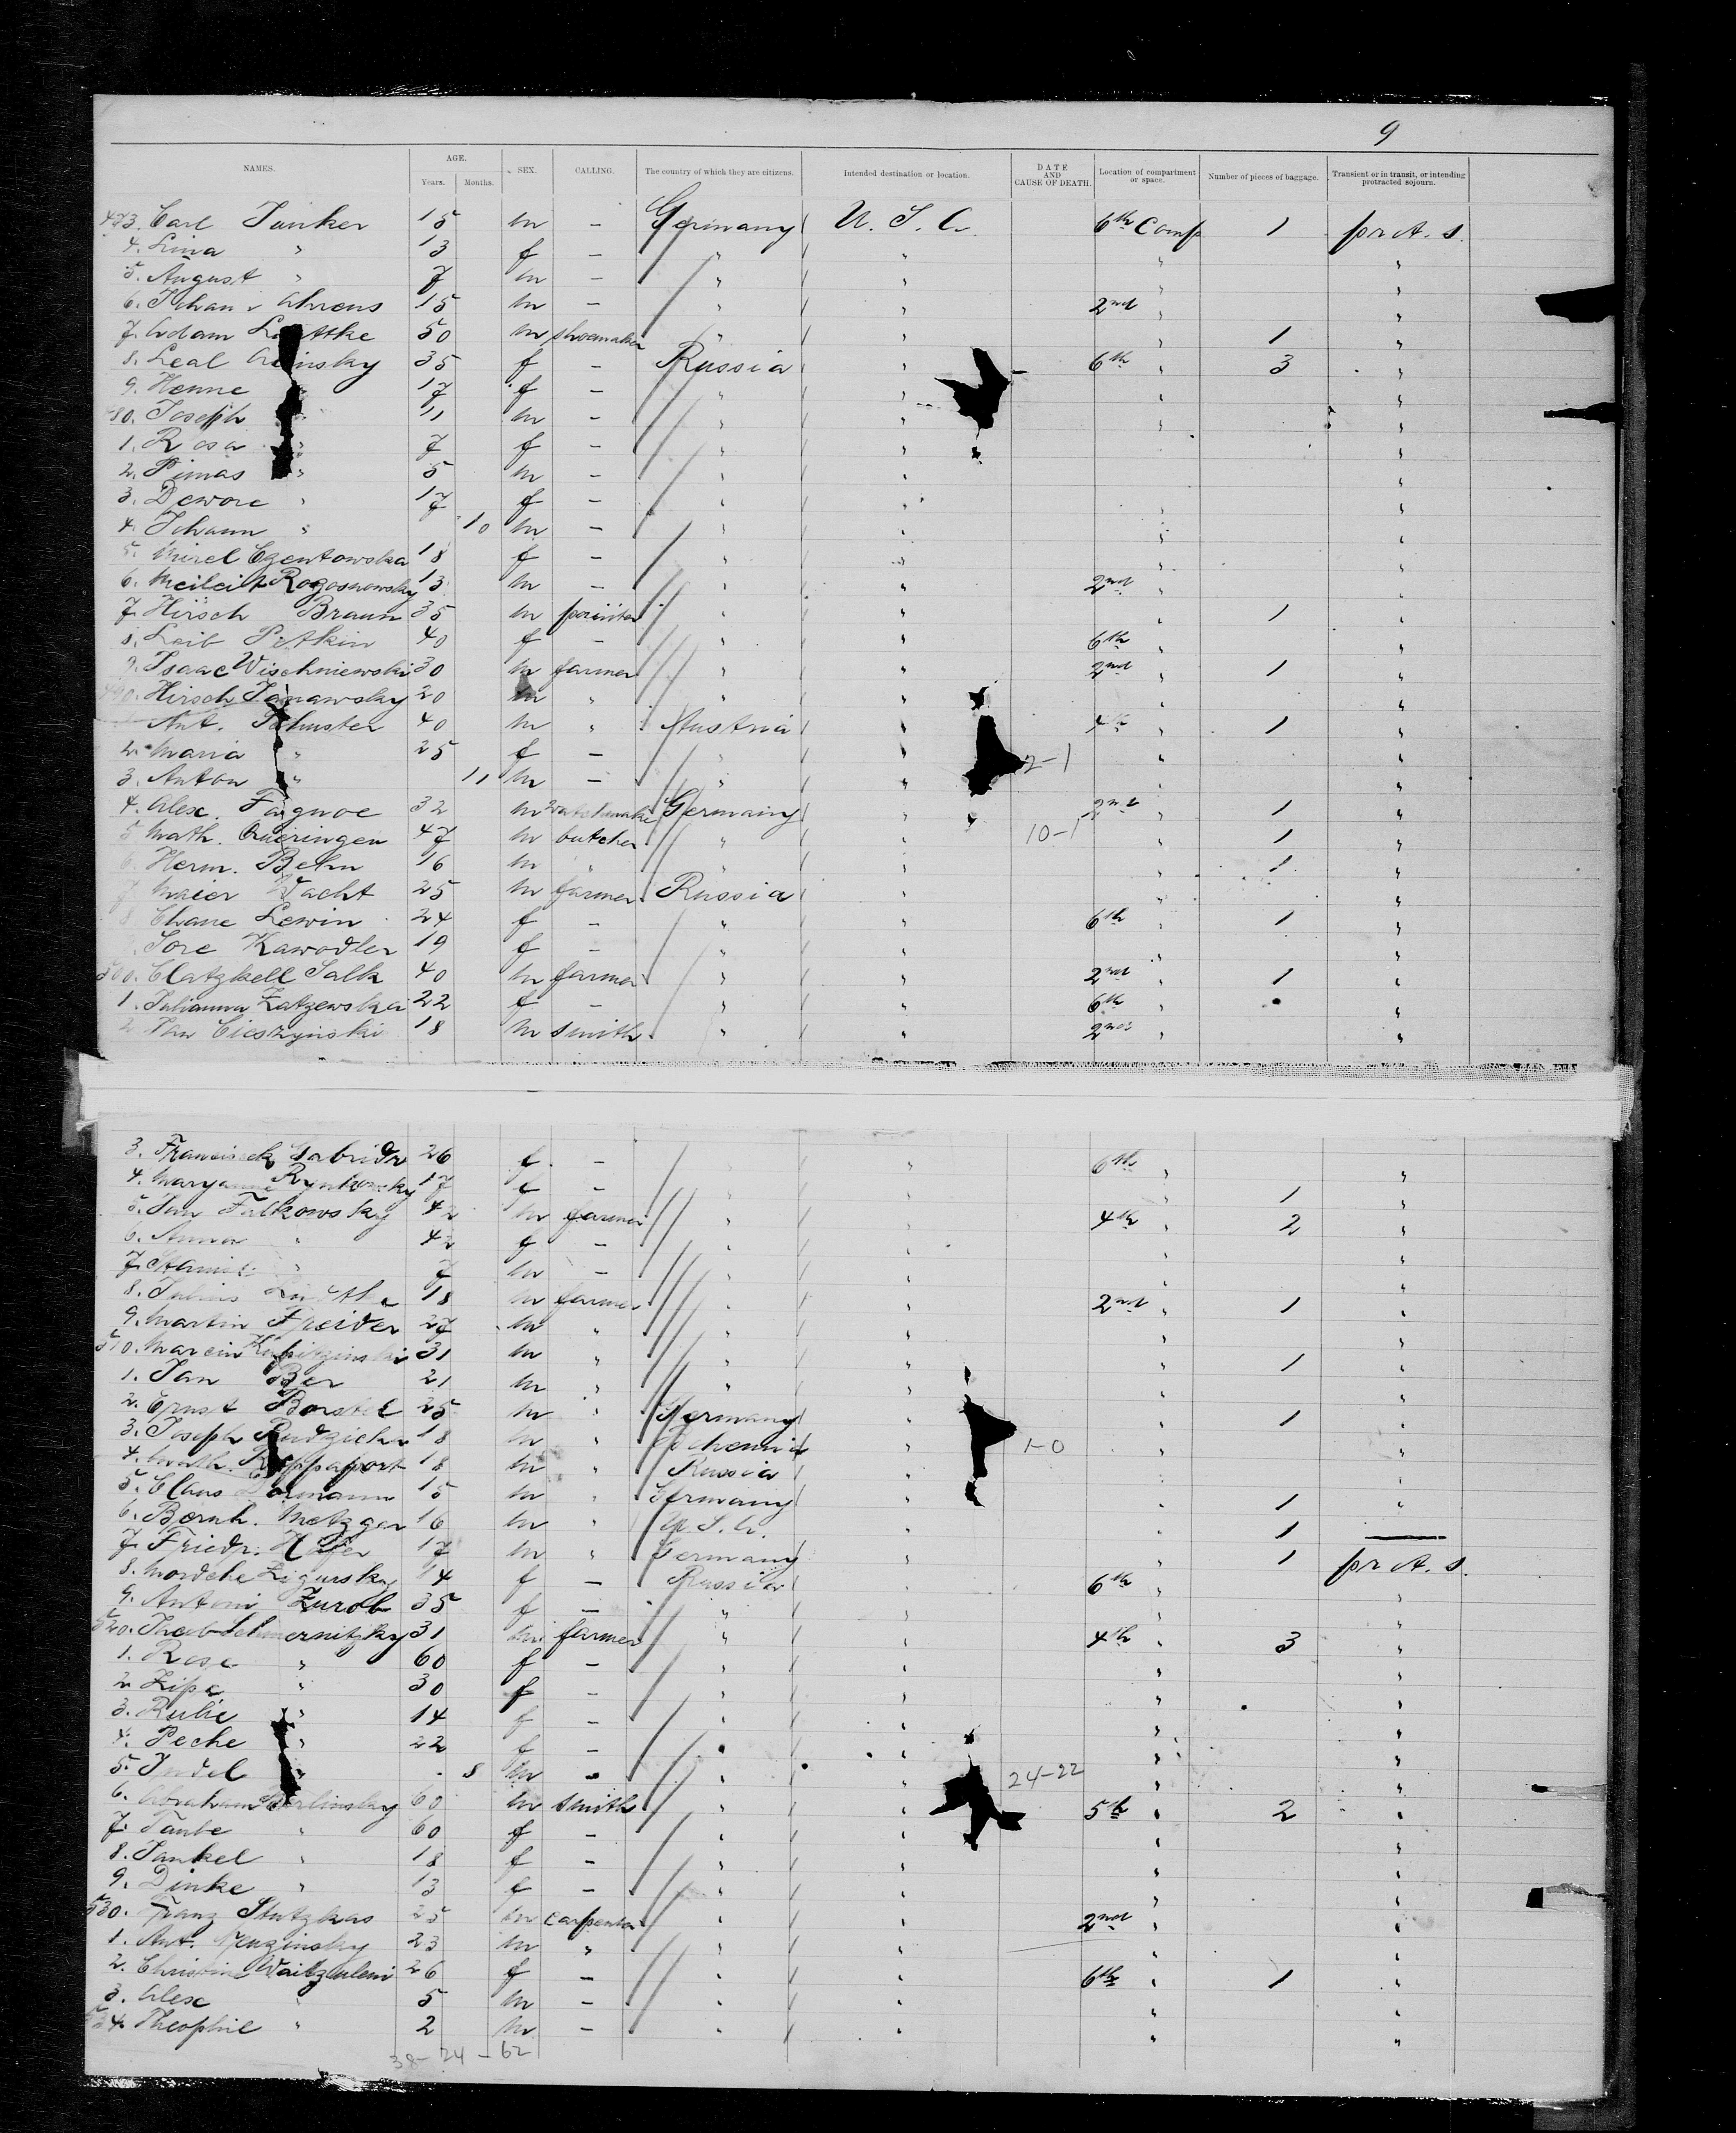 9
NAMES. AGE. SEX. CALLING. The country of which they are citizens. Intended destination or location. DATE AND CAUSE OF DEATH. Location of compartment or space. Number of pieces of baggage. Transient or in transit, or intending protracted sojourn.
Years. Months.
473. Carl Junker 15 m – Germany U. S. A. 6th Comp 1 pr A. s.
4. Lina " 13 f – " " " "
5. August " 7 m – " " " "
6. Johann Ahrens 15 m – " " 2nd " "
7. Adam 50 m shoemaker " " " 1 "
8. Leal 35 f – Russia " 6th " 3 "
9. Henne " 17 f – " " " "
80. Joseph " 11 m – " " " "
1. Rosa " 7 f – " " "
2. Pimas " 5 m – " " "
3. Dewore " 17 f – " " " "
4. Johann " 10 m – " " " "
5. Mirel Czentowska 18 f – " " " "
6. Rogosnowsky 13 m – " " 2nd " "
7. Hirsch Braun 35 m " " " 1 "
8. Leib Pitkin 40 f – " " 6th " "
9. Isaac Wischniewski 30 m farmer " " 2nd " 1 "
490. Hirsch Janawsky 20 m " " " " "
Ant. Schuster 40 m " Austria " 4th " 1 "
2. Maria " 25 f – " " 2-1 " "
3. Anton " 11 m – " " " "
4. Alex. Fagwoe 32 m watchmaker Germany " 2nd " 1 "
5. Math. Queringen 47 m butcher " " 10-1 " 1 "
6. Herm. Behn 16 m " " " " 1 "
7. Maier Wacht 25 m farmer Russia " " "
8. Chane Lewin 24 f – " " 6th " 1 "
9. Sore Kawodler 19 f – " " " "
500. Clatzkell Salk 40 m farmer " " 2nd " 1 "
1. Julianna Zatzewska 22 f – " " 6th " "
2. Jan Cieszynski 18 m smith " " 2nd " "
3. Franciszek 26 f – " " 6th " "
4. Maryanne Rynkowsky 17 f – " " " 1 "
5. Jan Falkowsky 42 m farmer " " 4th " 2 "
6. Anna " 42 f – " " " "
7. " 7 m – " " " "
8. Julius 18 m farmer " " 2nd " 1 "
9. Martin Freider 27 m " " " " "
510. Marcin 31 m " " " " 1 "
1. Jan Ber 21 m " " " " "
2. Ernst Borstel 25 m " Germany " " 1 "
3. Joseph Rudzicka 18 m " " 1-0 " "
4. Rappaport 18 m " Russia " " "
5. Claus Dormann 15 m " Germany " " 1 "
6. Bernh. Metzger 16 m " U. S. A. " 1 —
7. Friedr. Höfer 17 m " Germany " " 1 pr A. s.
8. Mordche Zigursky 14 f – Russia " 6th " "
9. Antoni Zurob 35 f – " " " "
520. Schmernitzky 31 m farmer " " 4th " 3 "
1. Rose " 60 f – " " " "
2. Zipe " 30 f – " " " "
3. Rulie " 14 f – " " " "
4. Peche " 22 f – " " " "
5. Judel " 8 m – " " 24-22 " "
6. Abraham Berlinsky 60 m smith " " 5th " 2 "
7. Taube " 60 f – " " " "
8. Jankel " 18 f – " " " "
9. Dinke " 13 f – " " " "
530. Franz Stutzkas 25 m carpenter " " 2nd " "
1. Ant. 23 m " " " " "
2. Christine 26 f – " " 6th " 1 "
3. Alex " 5 m – " " " "
534. Theophil " 2 m – " " " "
38-24-62